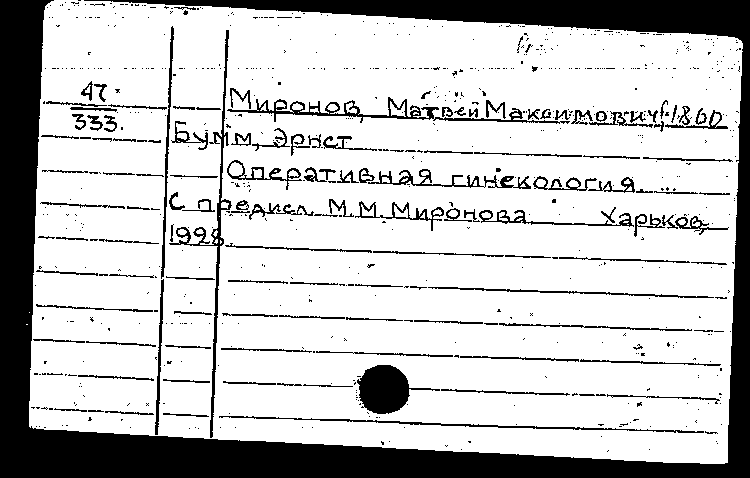 47
333.
Миронов, Матвей Максимович, 1860
Бумм, Эрнст
Оперативная гинекология. ...
С предисл. М.М. Миронова. Харьков,
1928.